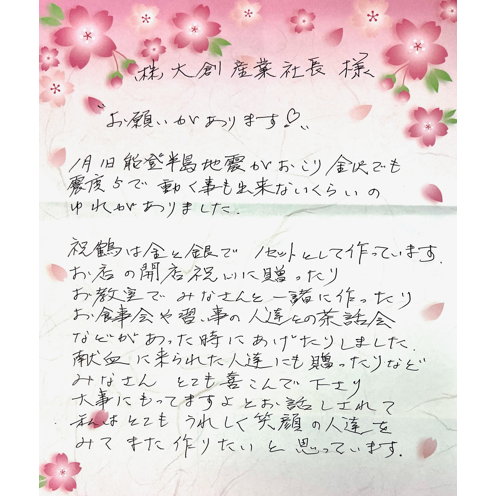 (株)大創産業社長 様
"お願いがあります♡"
1月1日能登半島地震がおこり金沢でも
震度5で動く事も出来ないくらいの
ゆれがありました.
祝鶴は金と銀で1セットとして作っています.
お店の開店祝いに贈ったり
お教室でみなさんと一諸に作ったり
お食事会や習い事の人達との茶話会
などがあった時にあげたりしました.
献血に来られた人達にも贈ったりなど
みなさん とても喜こんで下さり
大事にもってますよとお話しされて
私はとてもうれしく笑顔の人達を
みてまた作りたいと思っています.